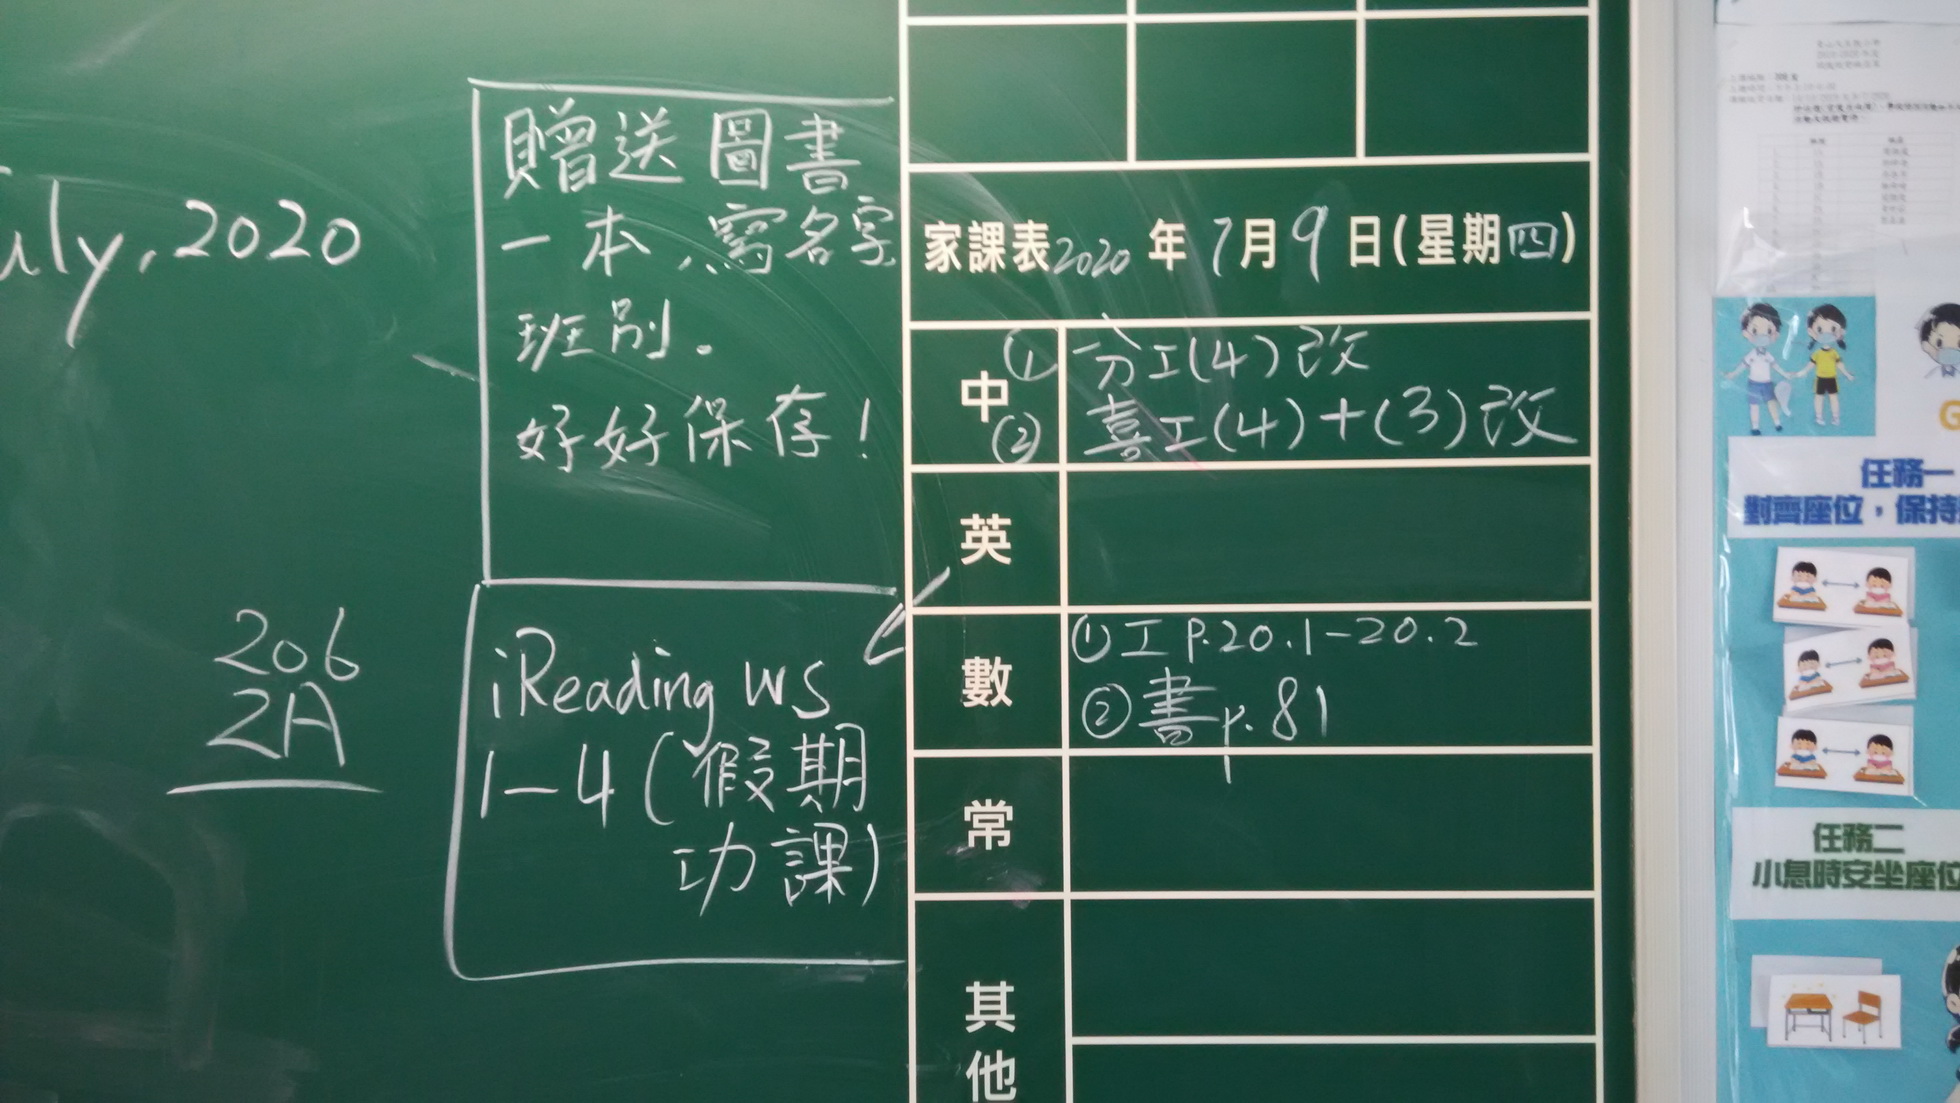 uly, 2020
206
2A
贈送圖書
一本，寫名字
班別。
好好保存！
iReading WS
1-4（假期
功課）
家課表2020年7月9日(星期四)
中
① 分工(4)改
② 喜工(4)+(3)改
英
數
① 工 p.20.1-20.2
② 書 p.81
常
其
他
任務一
對齊座位，保持
任務二
小息時安坐座位
G